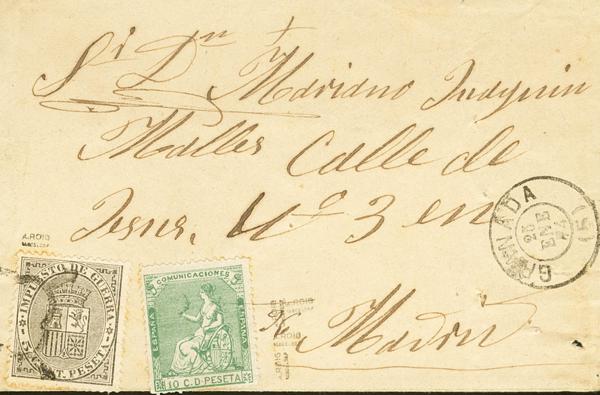 Sr Dn Mariano Juaquin
Malles Calle de
Jesus, Nº 3 en
Madrid
GRANADA
(5)
25
ENE
74
A.ROIG
IMPUESTO DE GUERRA
5 CENT. PESETA
COMUNICACIONES
ESPAÑA
ESPAÑA
10 C. D PESETA
A.ROIG
A.ROIG